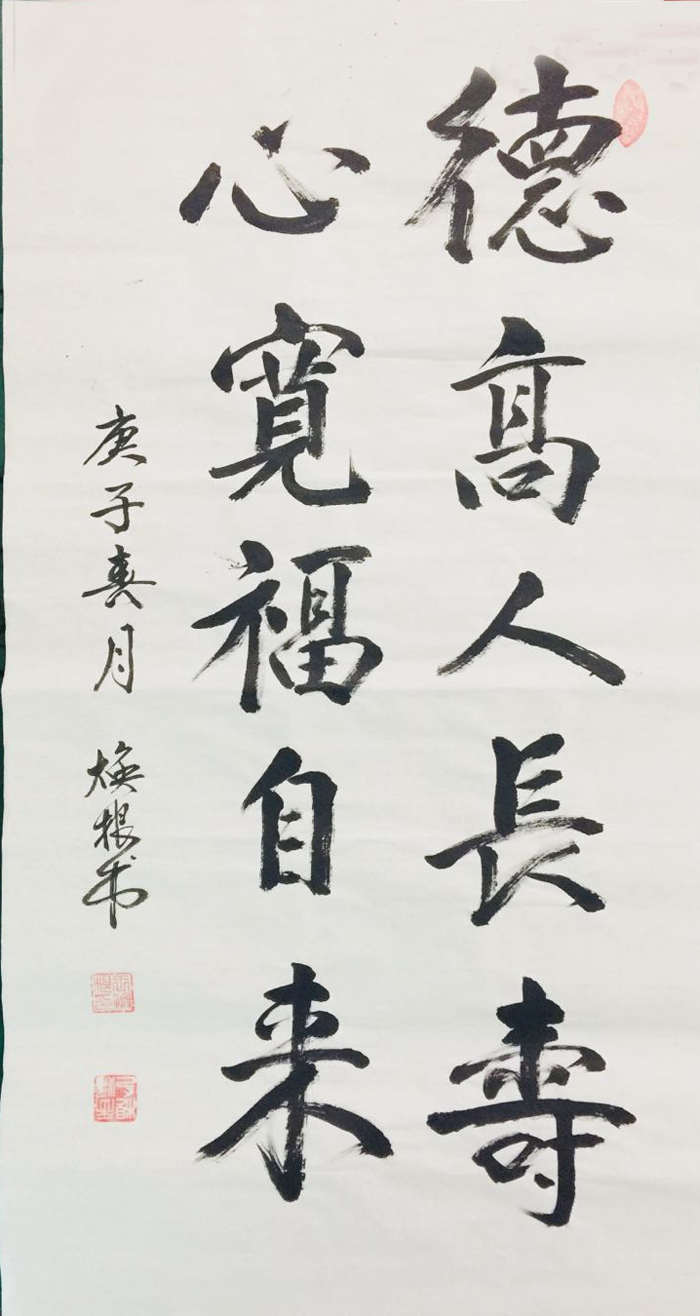 德高人長壽
心寬福自来
庚子春月 焕根书